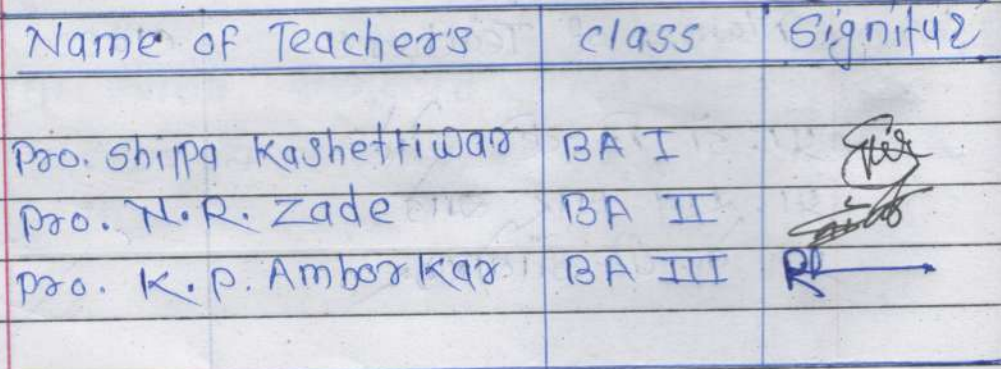 Name of Teachers class Signitur
Pro. Shilpa Kashettiwar BA I
Pro. N.R. Zade BA II
Pro. K.P. Amborkar BA III